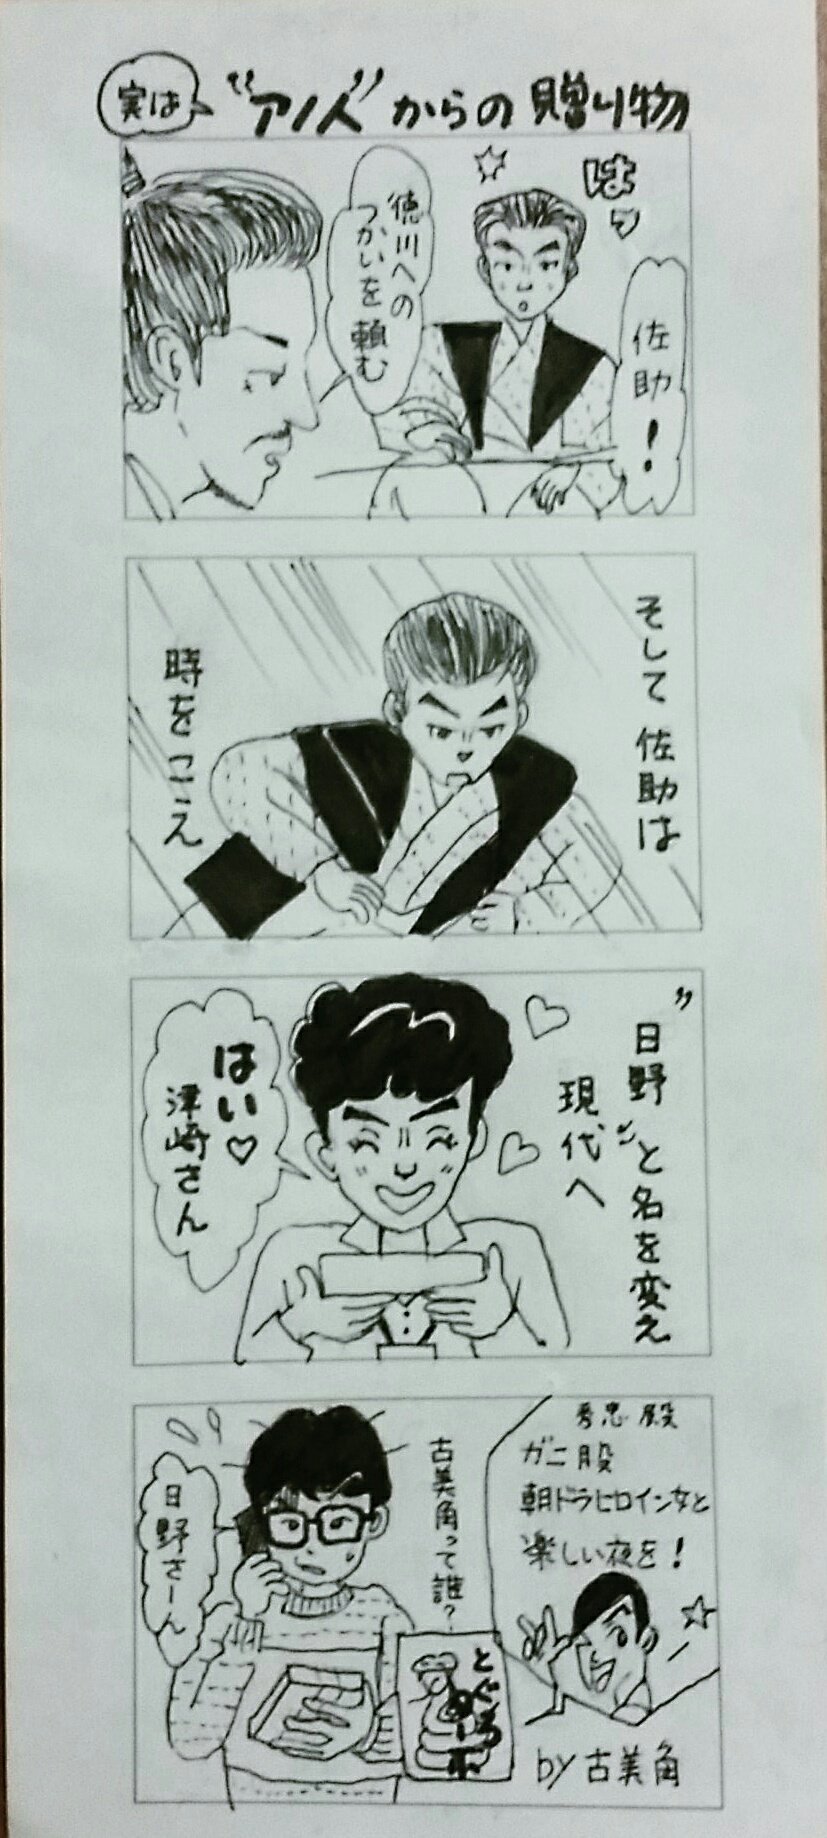 実は
"アノ人"からの贈り物
はッ
佐助!
徳川への
つかいを頼む
そして佐助は
時をこえ
"日野"と名を変え
現代へ
はい♡
津崎さん
秀忠殿
ガニ股
朝ドラヒロイン女と
楽しい夜を!
古美角って誰?
日野さーん
とぐろ
by古美角